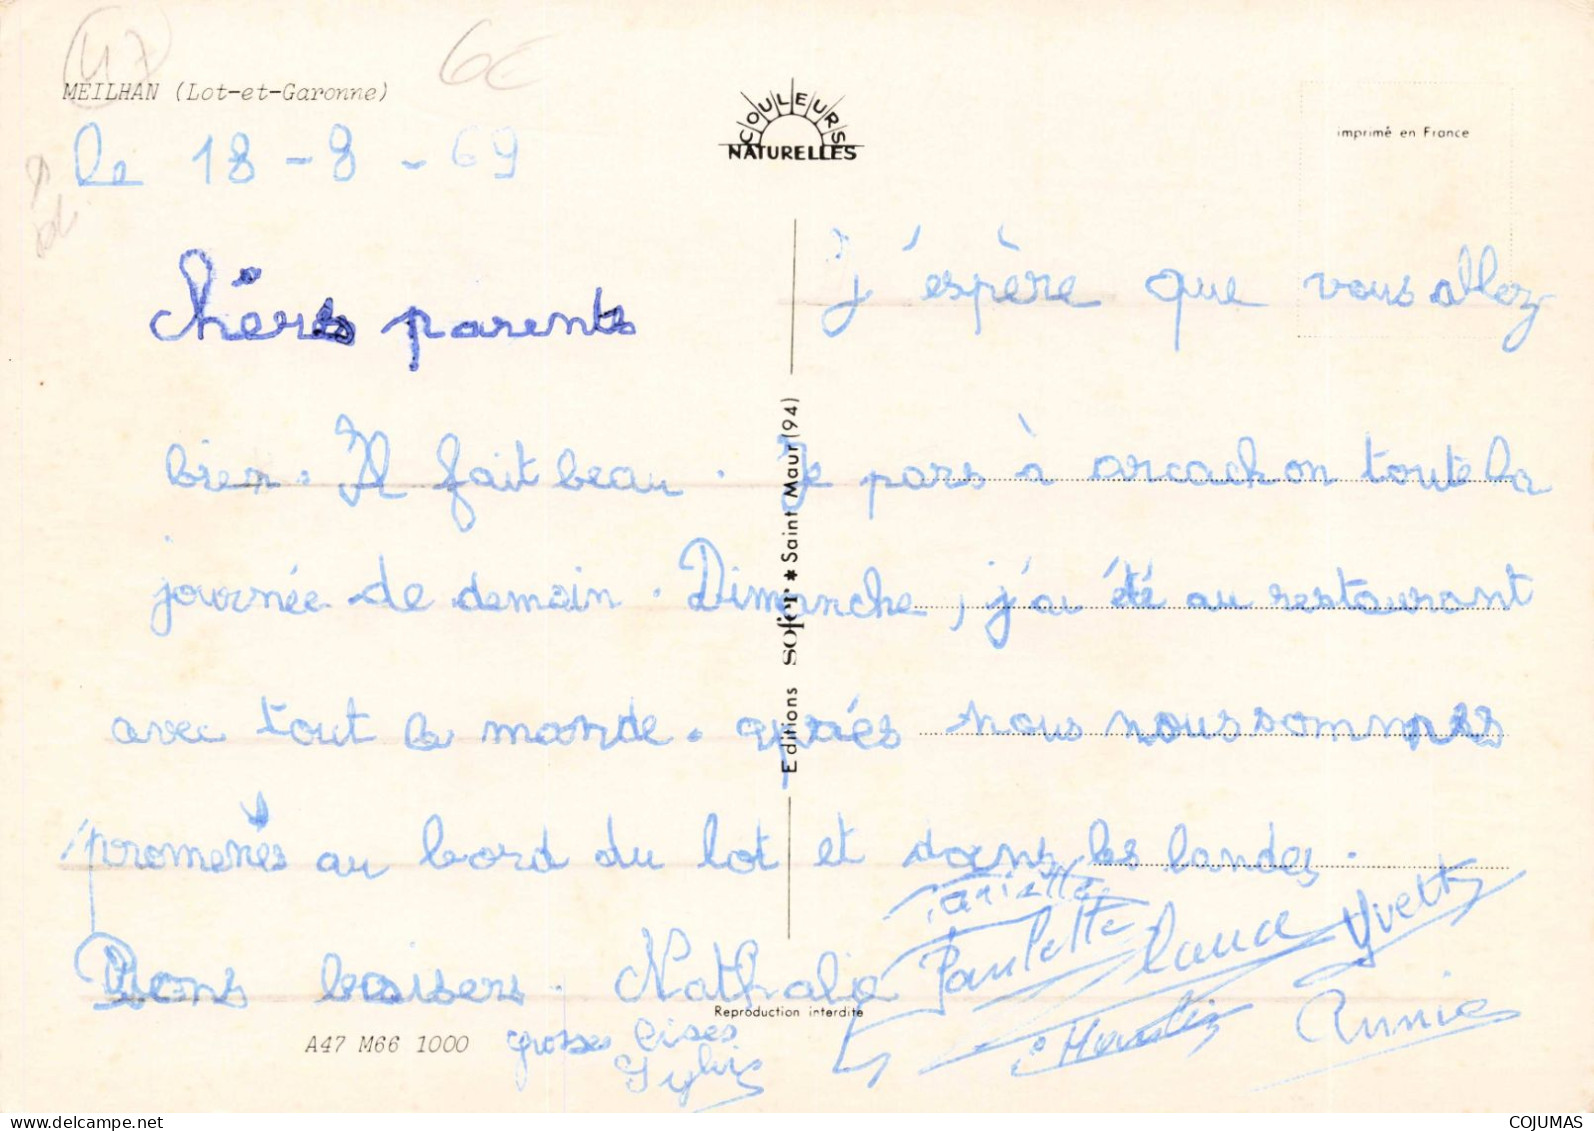 47
6€
MEILHAN (Lot-et-Garonne)
COULEURS
NATURELLES
imprimé en France
le 18-8-69
Chèrs parents
J'espère que vous allez
bien. Il fait beau. Je pars à arcachon toute la
journée de demain. Dimanche, j'ai été au restaurant
avec tout le monde. après nous nous sommes
promenés au bord du lot et dans les landes.
Bons baisers. Nathalie
Paulette
Yvette
Annie
grosses bises
Sylvie
Editions sofer * Saint Maur (94)
Reproduction interdite
A47 M66 1000
COJUMAS